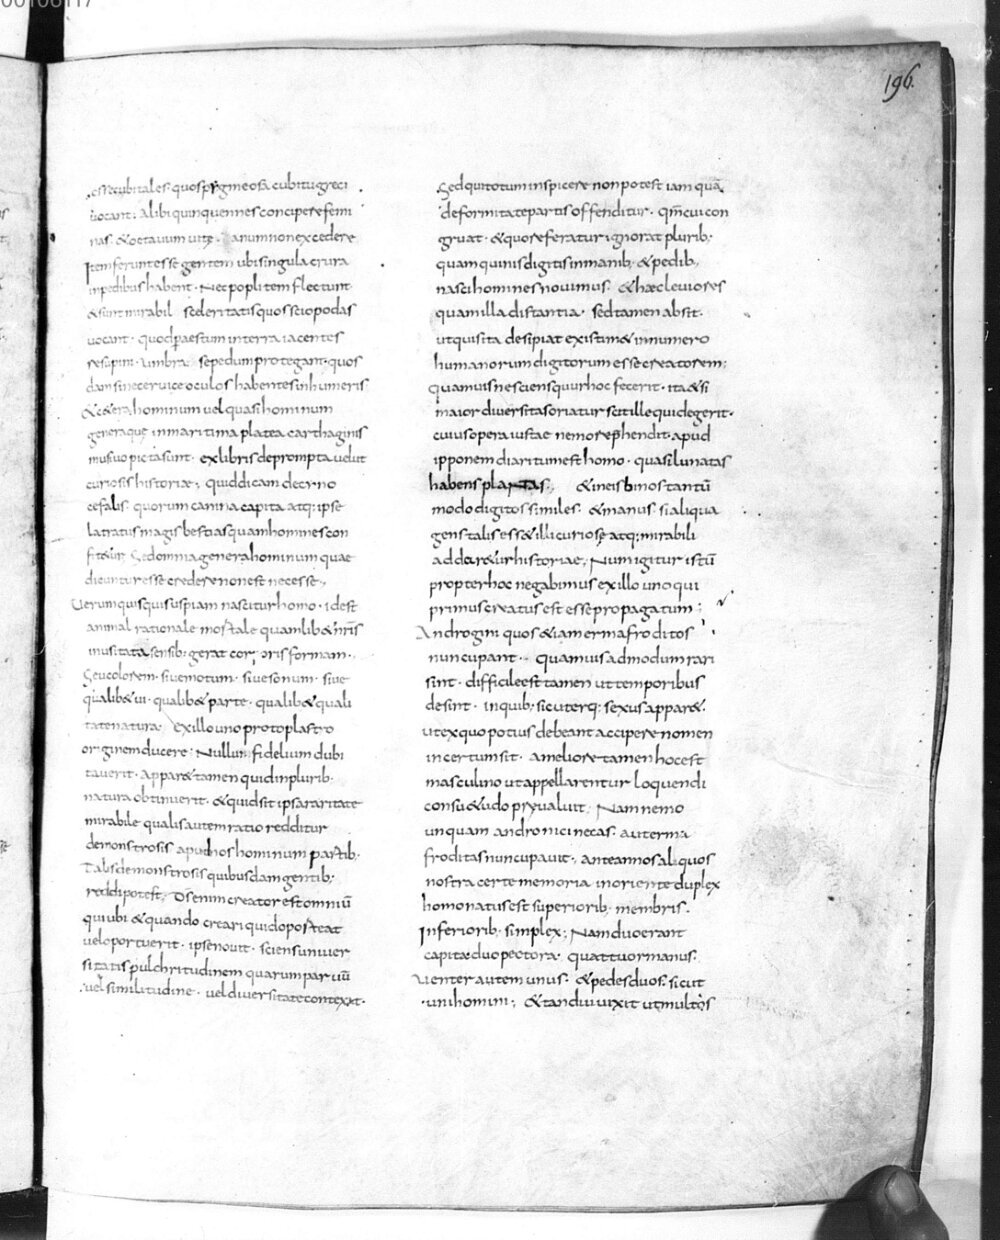 196.
esse cubitales. quos pygmeos a cubitu greci
vocant. Alibi quinquennes concipere femi
nas. & octavum vitę annum non excedere
Item ferunt esse gentem ubi singula crura
in pedibus habent. Nec poplitem flectunt
& sunt mirabil sceleritatis quos sciopodas
vocant. quod p aestum in terra iacentes
resupini. umbra se pedum protegant. quos
dam sine cervice oculos habentes in humeris
& cetera hominum vel quasi hominum
generaque in maritima platea carthaginis
musivo picta sunt. ex libris deprompta velut
curiosis historiae; quid dicam de cyno
cefalis. quorum canina capita atq; ipse
latratus magis bestias quam homines con
fitetur; Sed omnia genera hominum quae
dicuntur esse credere non est necesse;
Verum quisquis uspiam nascitur homo. id est
animal rationale mortale quamlib& nr̄is
inusitatā sensib; gerat corporis formam.
Seu colorem. sive motum. sive sonum. sive
qualib& vi. qualib& parte. qualib& quali
tate natura. ex illo uno protoplastro
originem ducere; Nullus fidelium dubi
taverit. appar& tamen quid in plurib;
natura obtinuerit. & quid sit ipsa raritate
mirabile qualis autem ratio redditur
de monstrosis apud nos hominum partib;
Talis de monstrosis quibusdam gentib;
reddi potest; D̄s enim creator est omniū
qui ubi & quando creari quid oporteat
vel oportuerit. ipse novit. sciens univer
sitatis pulchritudinem quarum partiū
vel similitudine. vel diversitate contexat.
Sed qui totum inspicere non potest tamquā
deformitate partis offenditur. qm̄ cui con
gruat. & quo referatur ignorat plurib;
quam quinis digitis in manib; & pedib;
nasci homines novimus. & haec levior es
quam illa distantia. sed tamen absit.
ut quis ita desipiat existim& in numero
humanorum digitorum esse creatorem;
quamvis nesciens qur hoc fecerit. ita & si
maior diversitas oriatur scit ille quid egerit.
cuius opera iustae nemo rep̄hendit. apud
ipponem diaritum est homo. quasi lunatas
habens plantas; & in eis binos tantū
modo digitos similes. & manus. si aliqua
gens talis ess& illi curiose atq; mirabili
adder&ur historiae; Num igitur istū
propter hoc negabimus ex illo uno qui
primus creatus est esse propagatum;
Androgini quos & iam ermafroditos
nuncupant. quamvis admodum rari
sint. difficile est tamen ut temporibus
desint. in quib; sic uterq; sexus appar&.
ut ex quo potius debeant accipere nomen
incertum sit. a meliore tamen hoc est
masculino ut appellarentur loquendi
consu&udo prevaluit; Nam nemo
unquam andronicinecas. aut erma
froditas nuncupavit; ante annos aliquos
nostra certe memoria in oriente duplex
homo natus est superiorib; membris.
Inferiorib; simplex; Nam duo erant
capita duo pectora. quattuor manus.
Venter autem unus. & pedes duos. sicut
uni homini; & tandiu vixit ut multos